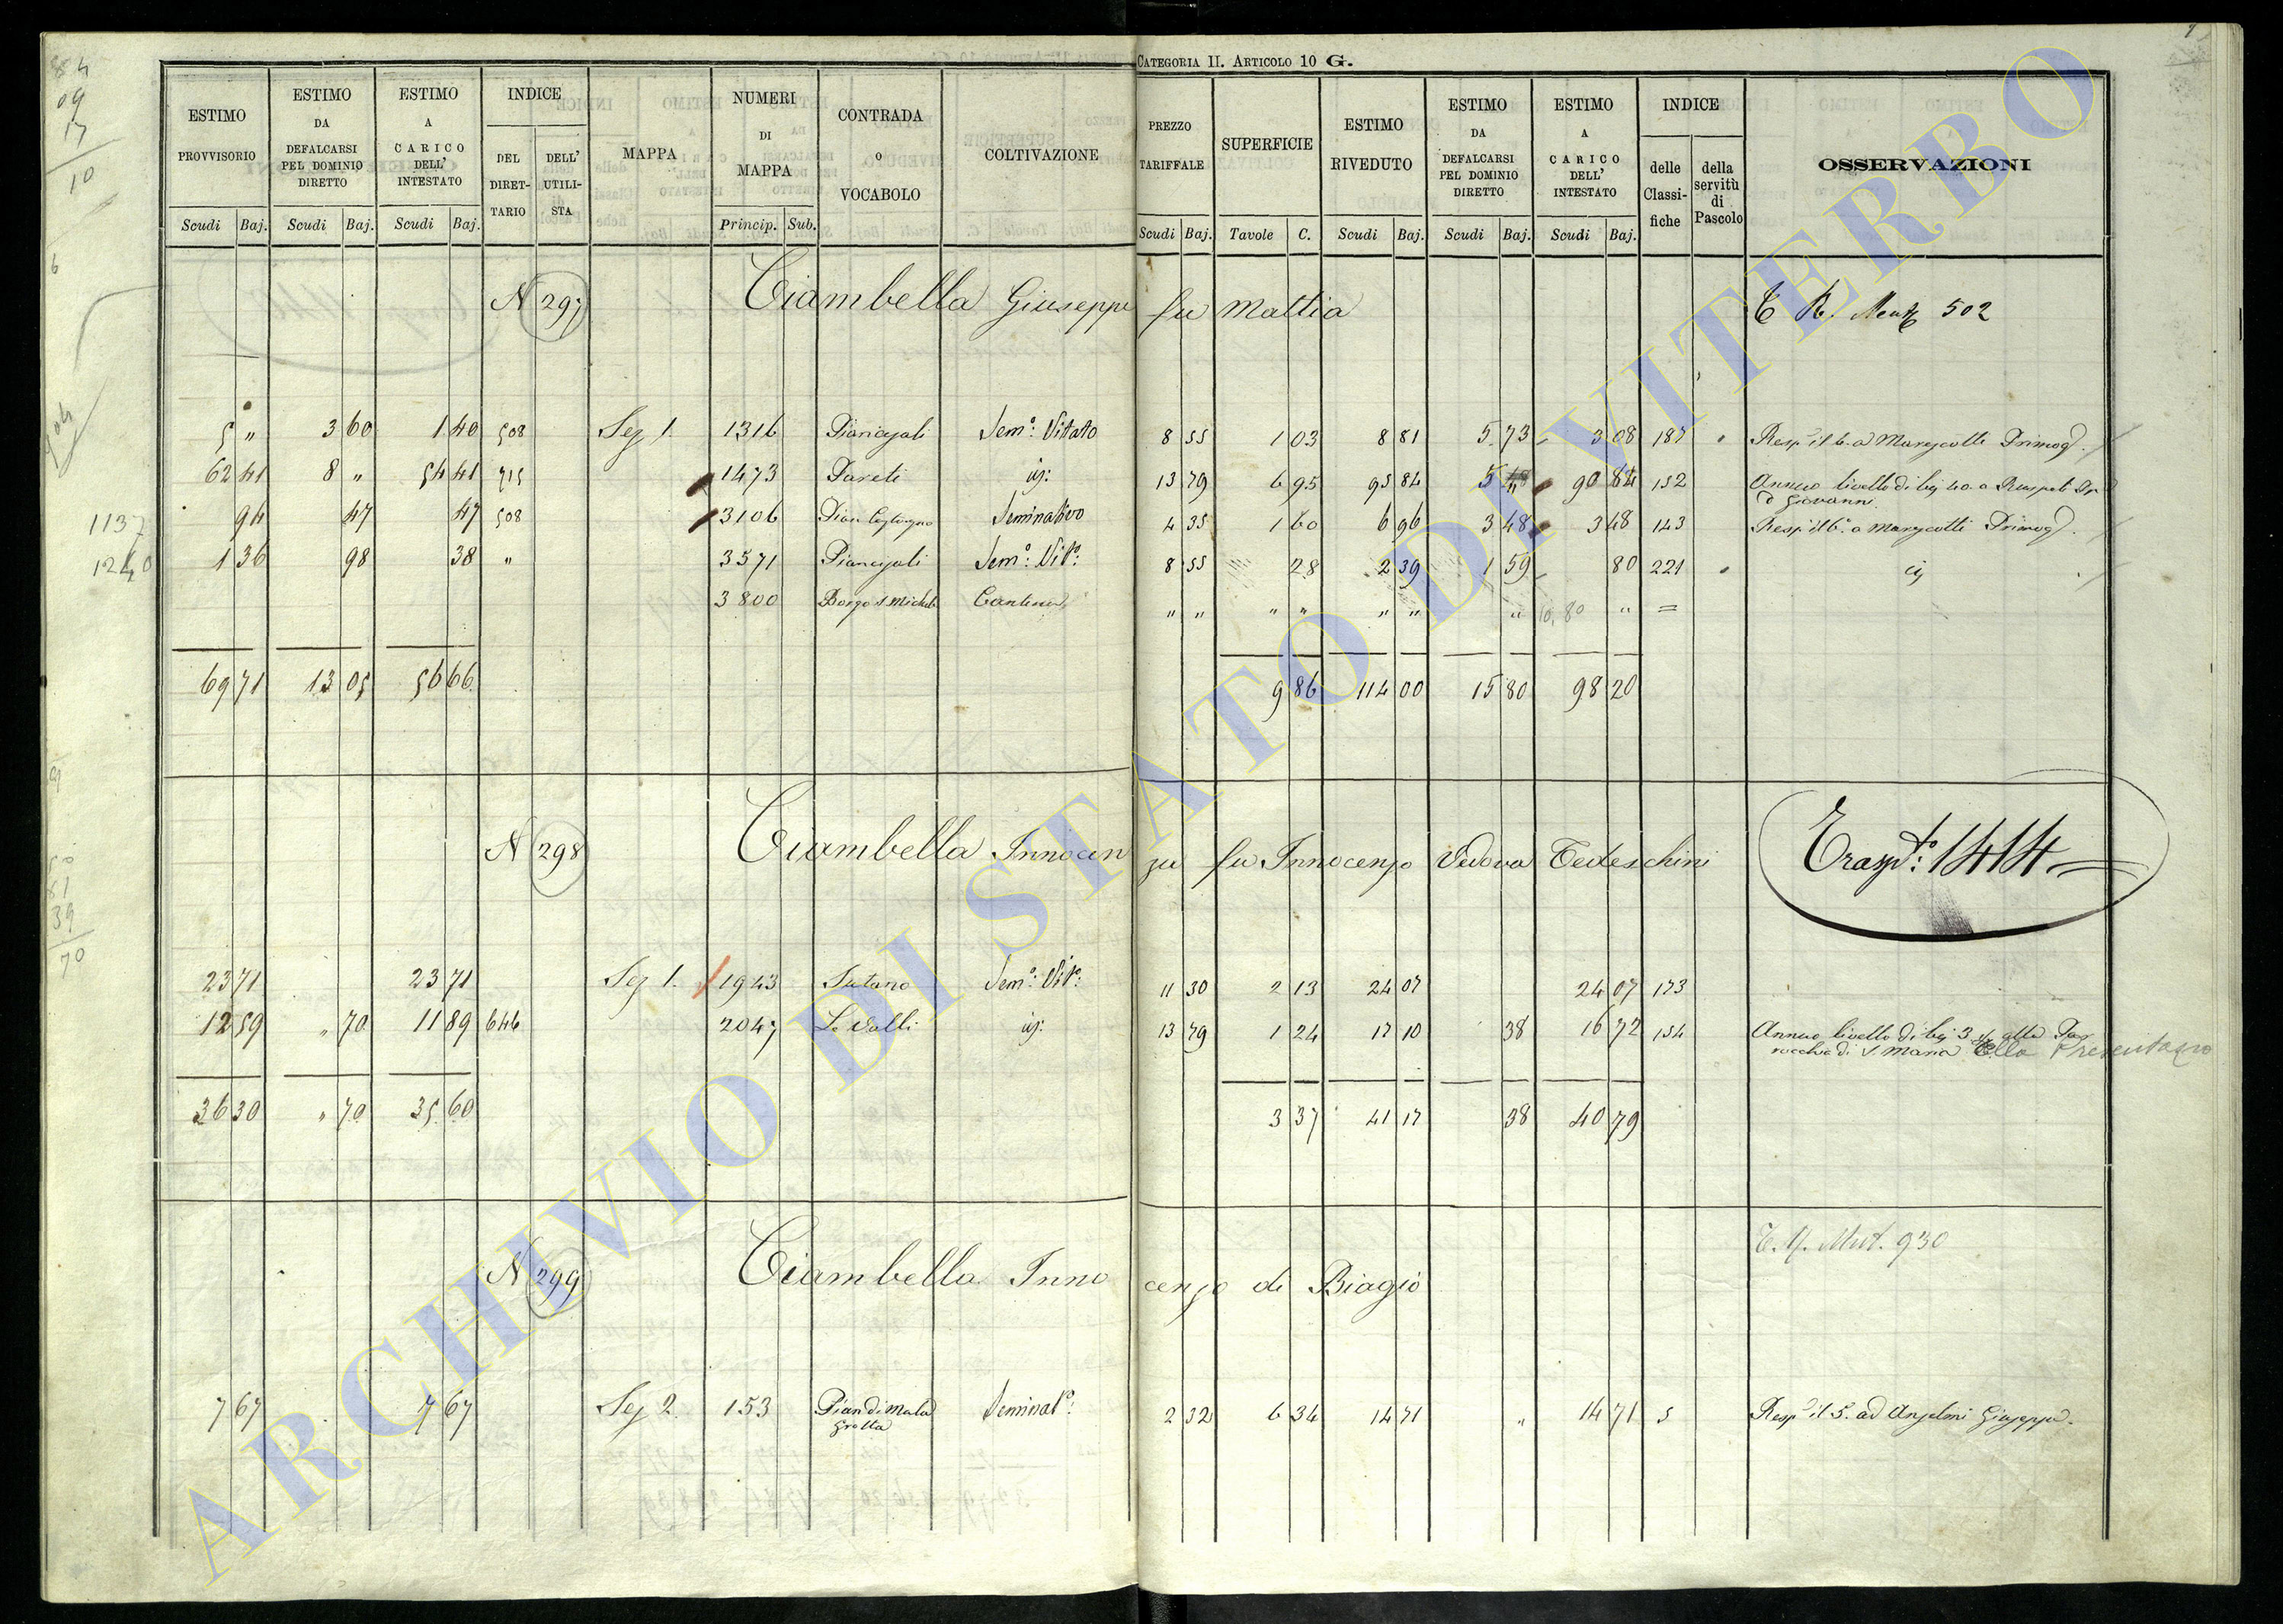 CATEGORIA II. ARTICOLO 10 G.
ESTIMO PROVVISORIO Scudi Baj. ESTIMO DA DEFALCARSI PEL DOMINIO DIRETTO Scudi Baj. ESTIMO A CARICO DELL' INTESTATO Scudi Baj. INDICE DEL DIRET-TARIO DELL' UTILI-STA MAPPA NUMERI DI MAPPA Princip. Sub. CONTRADA O VOCABOLO COLTIVAZIONE PREZZO TARIFFALE Scudi Baj. SUPERFICIE Tavole C. ESTIMO RIVEDUTO Scudi Baj. ESTIMO DA DEFALCARSI PEL DOMINIO DIRETTO Scudi Baj. ESTIMO A CARICO DELL' INTESTATO Scudi Baj. INDICE delle Classi-fiche della servitù di Pascolo OSSERVAZIONI
N 297 Ciambella Giuseppe fu Mattia 502
5 " 3 60 1 40 508 Sez 1. 1316 Sem.° Vitato 8 55 1 03 8 81 5 73 3 08 187
62 41 8 " 54 41 715 1473 Pareti 13 79 6 95 95 84 5 90 84 152 Annuo livello di bj 40 a Ruspoli
Giovanni
94 47 47 508 3106 Seminativo 4 35 1 60 6 96 3 48 3 48 143
1 36 98 38 " 3571 Sem.° Vit.° 8 55 28 2 39 1 59 80 221
3800 Borgo S. Michele Cantina " " " " " " " 10,80 " =
69 71 13 05 56 66 9 86 114 00 15 80 98 20
1137
1240
N 298 Ciambella Innocenza fu Innocenzo Vedova Tedeschini Trasp.to: 1414
23 71 23 71 Sez 1. 1943 Sutano Sem.° Vit.° 11 30 2 13 24 07 24 07 173
12 59 " 70 11 89 646 2047 Le Valli 13 79 1 24 17 10 38 16 72 154 Annuo livello di bj 3 alla Par
rocchia di S. Maria
36 30 " 70 35 60 3 37 41 17 38 40 79
T. Mut. 930
N 299 Ciambella Innocenzo di Biagio
7 67 7 67 Sez 2 153 Pian di Mala Seminat.° 2 32 6 34 14 71 " 14 71 5 Resp. il 5.° ad Anselmi Giuseppe.
Grotta
ARCHIVIO DI STATO DI VITERBO